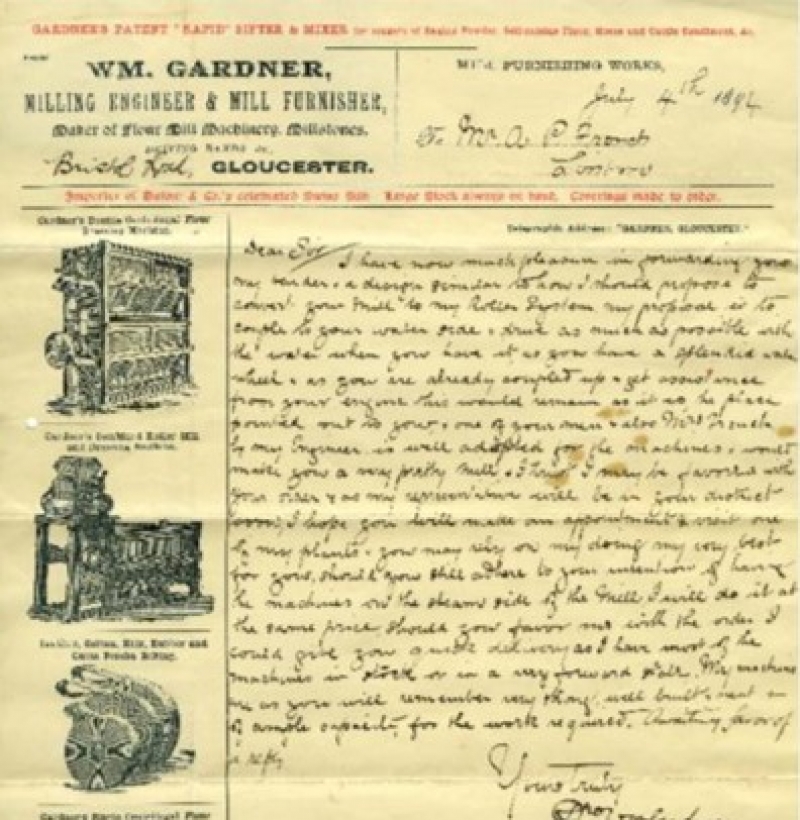 GARDNER'S PATENT "RAPID" SIFTER & MIXER
FROM
WM. GARDNER,
MILLING ENGINEER & MILL FURNISHER,
Maker of Flour Mill Machinery, Millstones,
DRIVING BANDS &c.
Bristol Road, GLOUCESTER.
MILL FURNISHING WORKS,
July 4th 189
To Mr. A. P. French
Importer of & Co.'s celebrated Silk Large Stock always on hand. Coverings made to order.
Telegraphic Address: "GARDNER, GLOUCESTER."
Gardner's Double Centrifugal Flour
Dressing Machine.
Gardner's Combined Roller Mill
and Dressing Machine.
Leather, Cotton, Hair, Rubber and
Belting.
Gardner's Flour
Dear Sir
I have now much pleasure in forwarding you
my tender & a design similar to how I should propose to
convert your Mill to my Roller System my proposal is to
couple to your water side & drive as much as possible with
the water when you have it as you have a splendid water
wheel & as you are already coupled up & get assistance
from your engine this would remain as it is the place
pointed out to your & one of your men & also Mrs French
by my Engineer is well adapted for the machines & would
make you a very pretty Mill & I trust I may be favored with
your order & as my representative will be in your district
soon, I hope you will make an appointment & visit one
of my plants. you may rely on my doing my very best
for you, should you still adhere to your intention of having
the machines on the steam side of the Mill I will do it at
the same price should you favor me with the order I
could give you quick delivery as I have most of the
machines in stock or in a very forward state. My machines
are as you will remember very strong, well built, neat &
of ample capacity for the work required. Awaiting favor of
a reply
Yours Truly